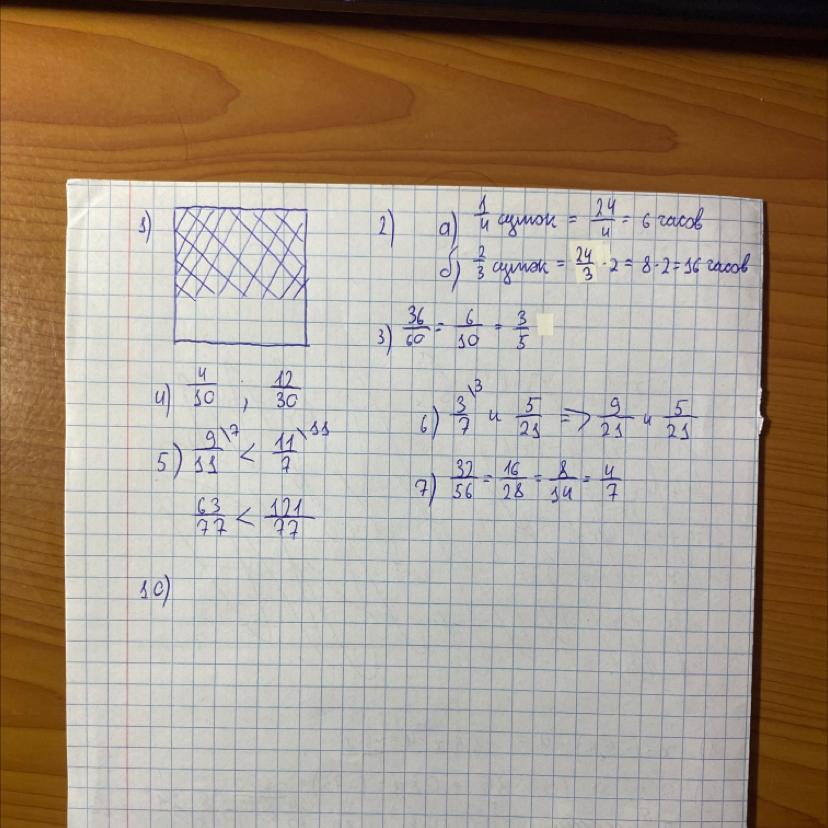 1)
2) а) 1/4 суток = 24/4 = 6 часов
б) 2/3 суток = 24/3 · 2 = 8 · 2 = 16 часов
3) 36/60 = 6/10 = 3/5
4) 4/10 ; 12/30
5) 9/11 \7 < 11/7 \11
63/77 < 121/77
6) 3/7 \3 и 5/21 => 9/21 и 5/21
7) 32/56 = 16/28 = 8/14 = 4/7
10)